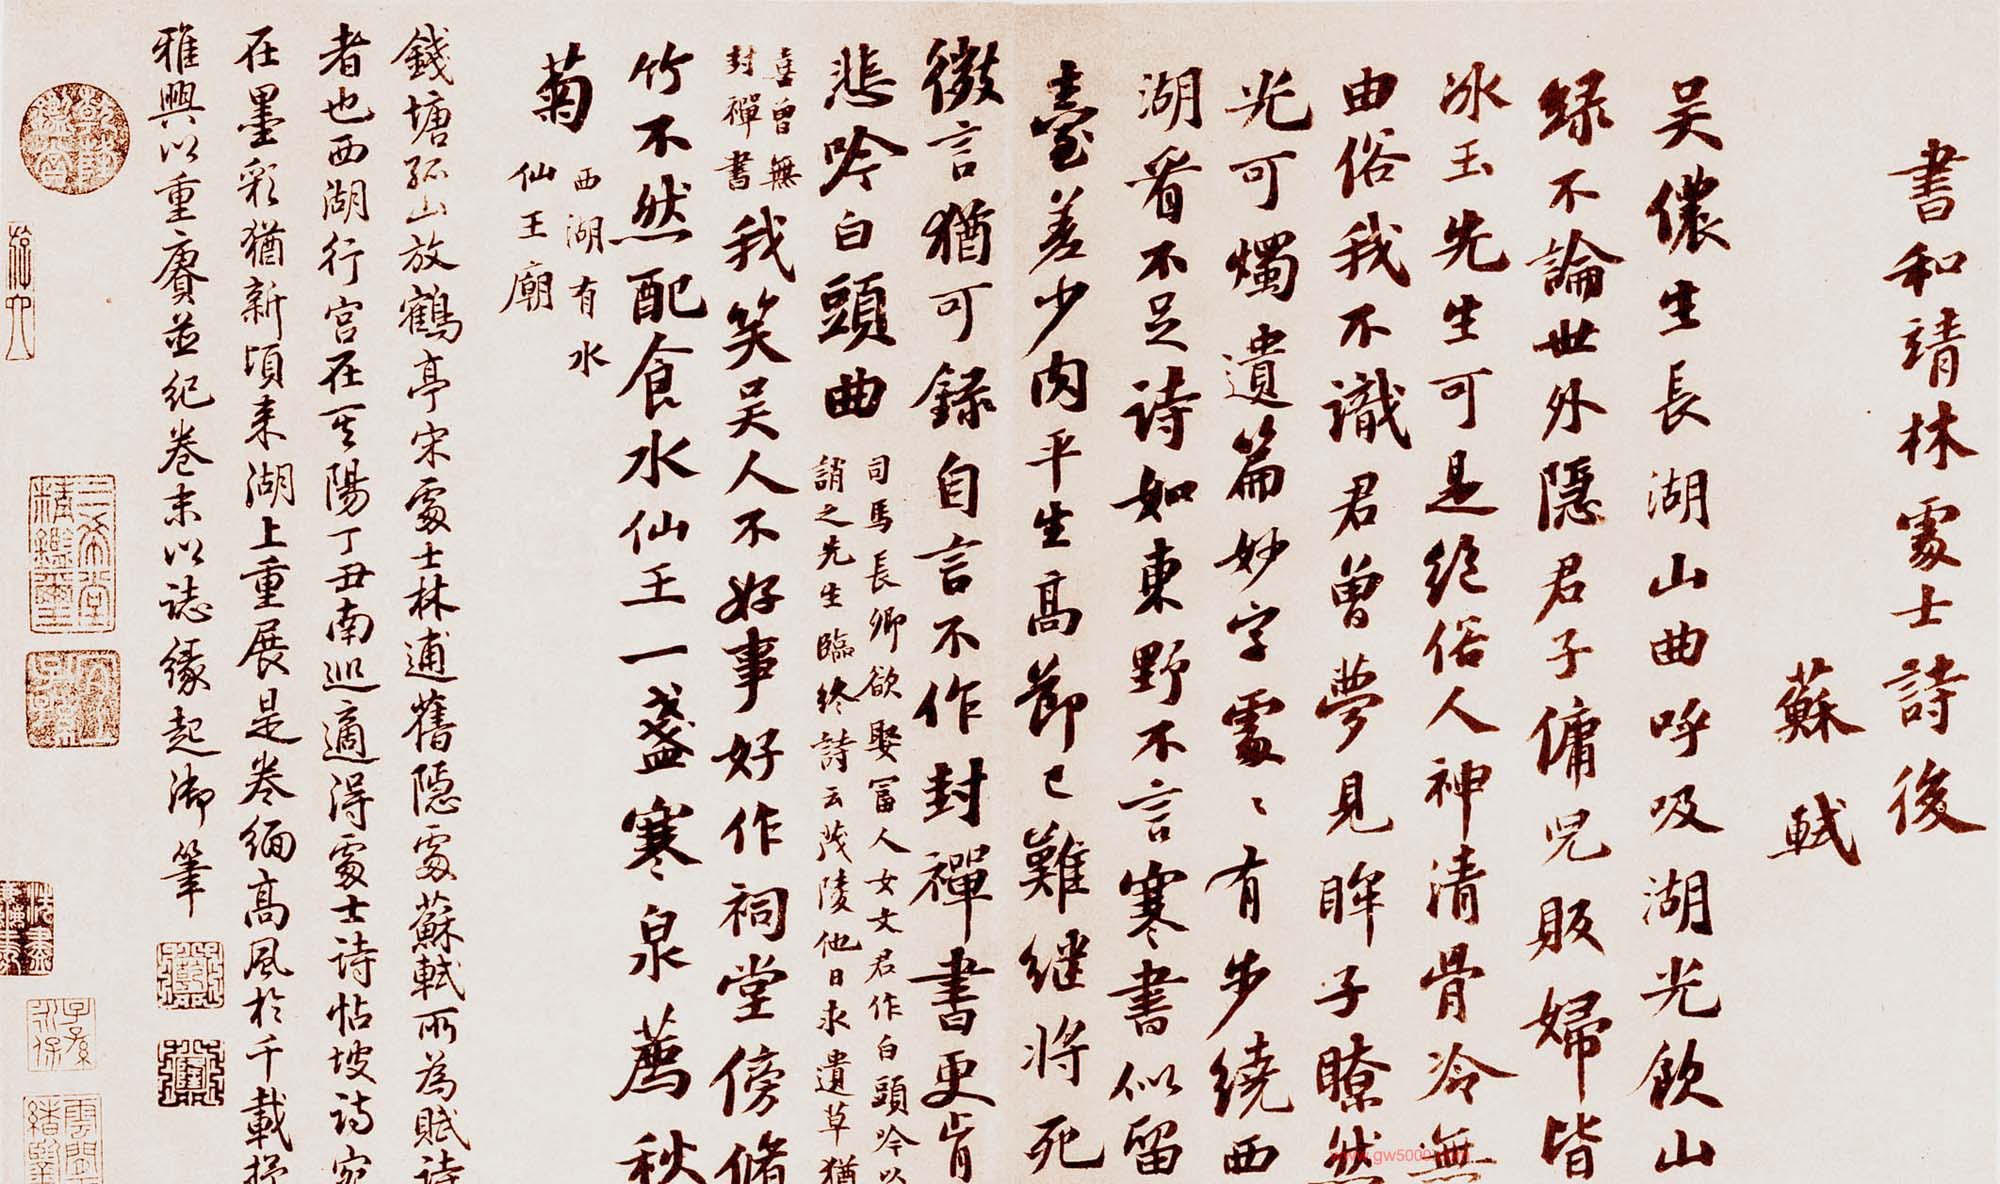 書和靖林處士詩後
蘇軾
吴儂生長湖山曲呼吸湖光飲山
緑不論世外隱君子傭兒販婦皆
冰玉先生可是絕俗人神清骨冷無
由俗我不識君曾夢見眸子瞭然
光可燭遺篇妙字處〻有步繞西
湖看不足詩如東野不言寒書似留
臺差少肉平生高節已難继将死
微言猶可録自言不作封禪書更肯
悲吟白頭曲
司馬長卿欲娶富人女文君作白頭吟以
誚之先生臨終詩云茂陵他日求遺草猶
喜曾無
封禪書
我笑吴人不好事好作祠堂傍脩
竹不然配食水仙王一盞寒泉薦秋
菊
西湖有水
仙王廟
錢塘孤山放鶴亭宋處士林逋舊隱處蘇軾所為賦詩
者也西湖行宫在其陽丁丑南巡適得處士詩帖坡詩宛
在墨彩猶新頃来湖上重展是卷緬高風於千載抒
雅興以重賡並紀卷末以誌緣起御筆
三希堂
精鑑璽
宜子孫
子孫
永保
www.gw500